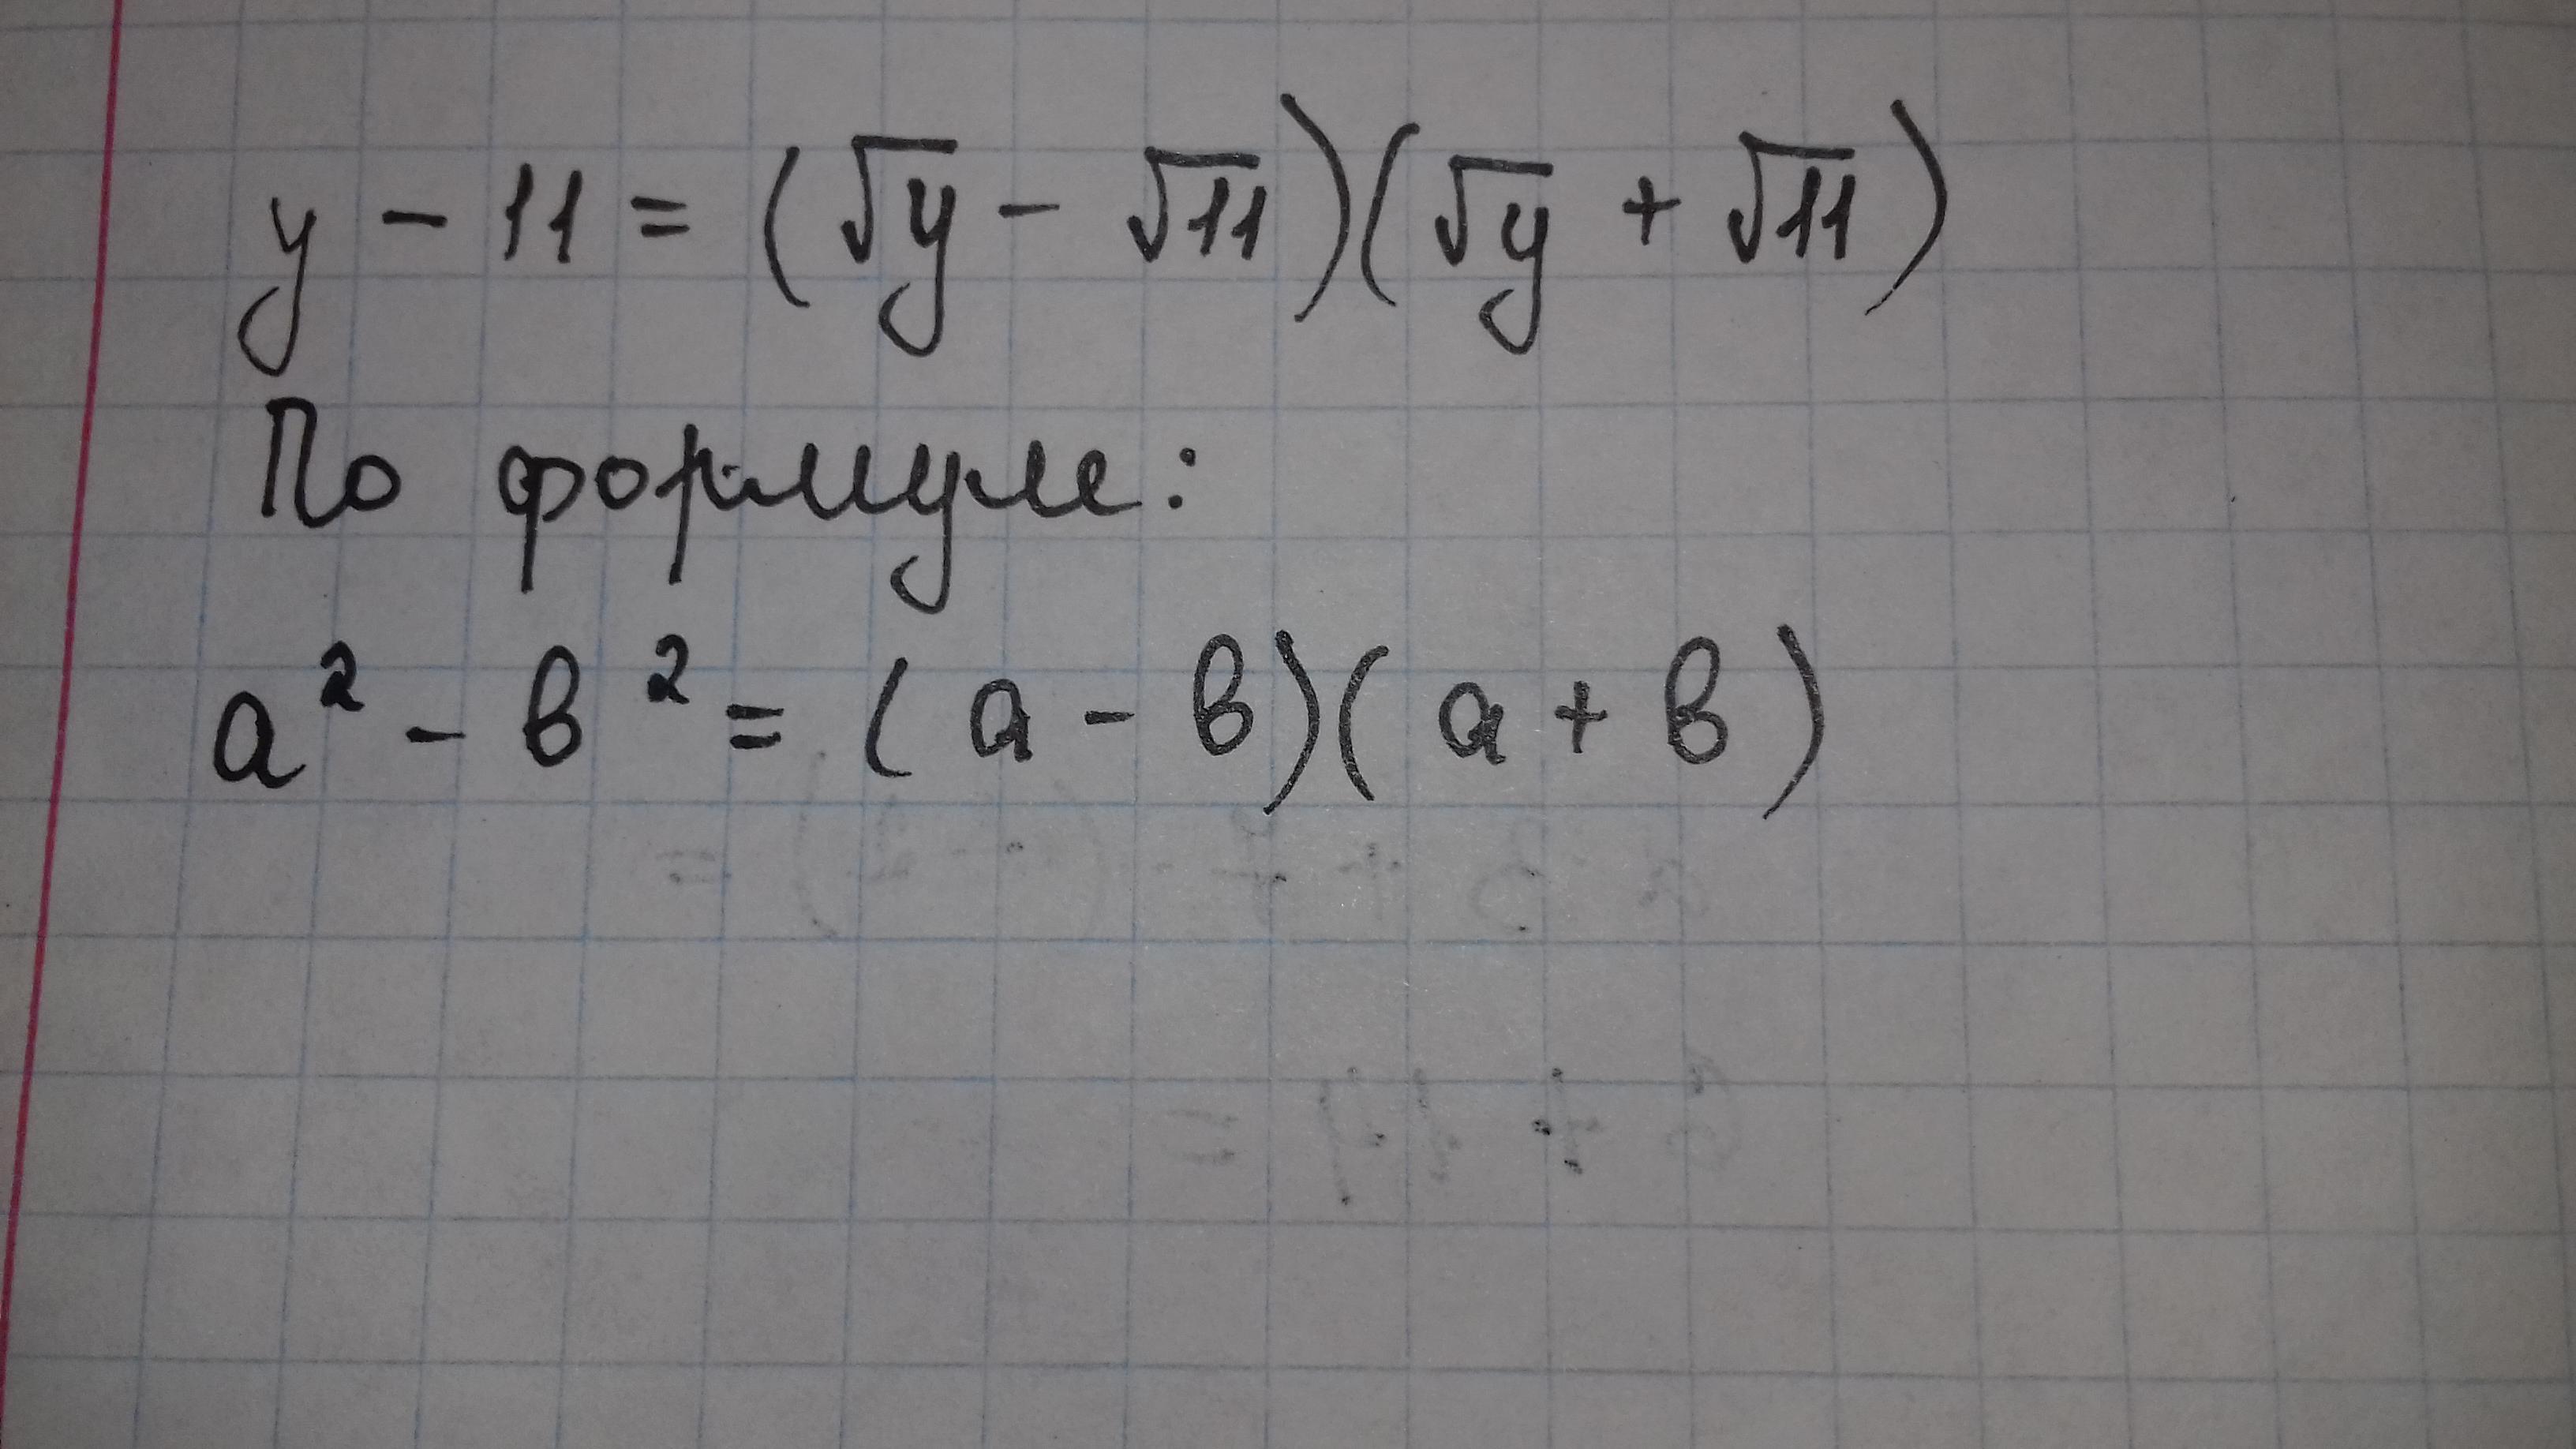 y - 11 = (√y - √11)(√y + √11)
По формуле:
a² - b² = (a - b)(a + b)